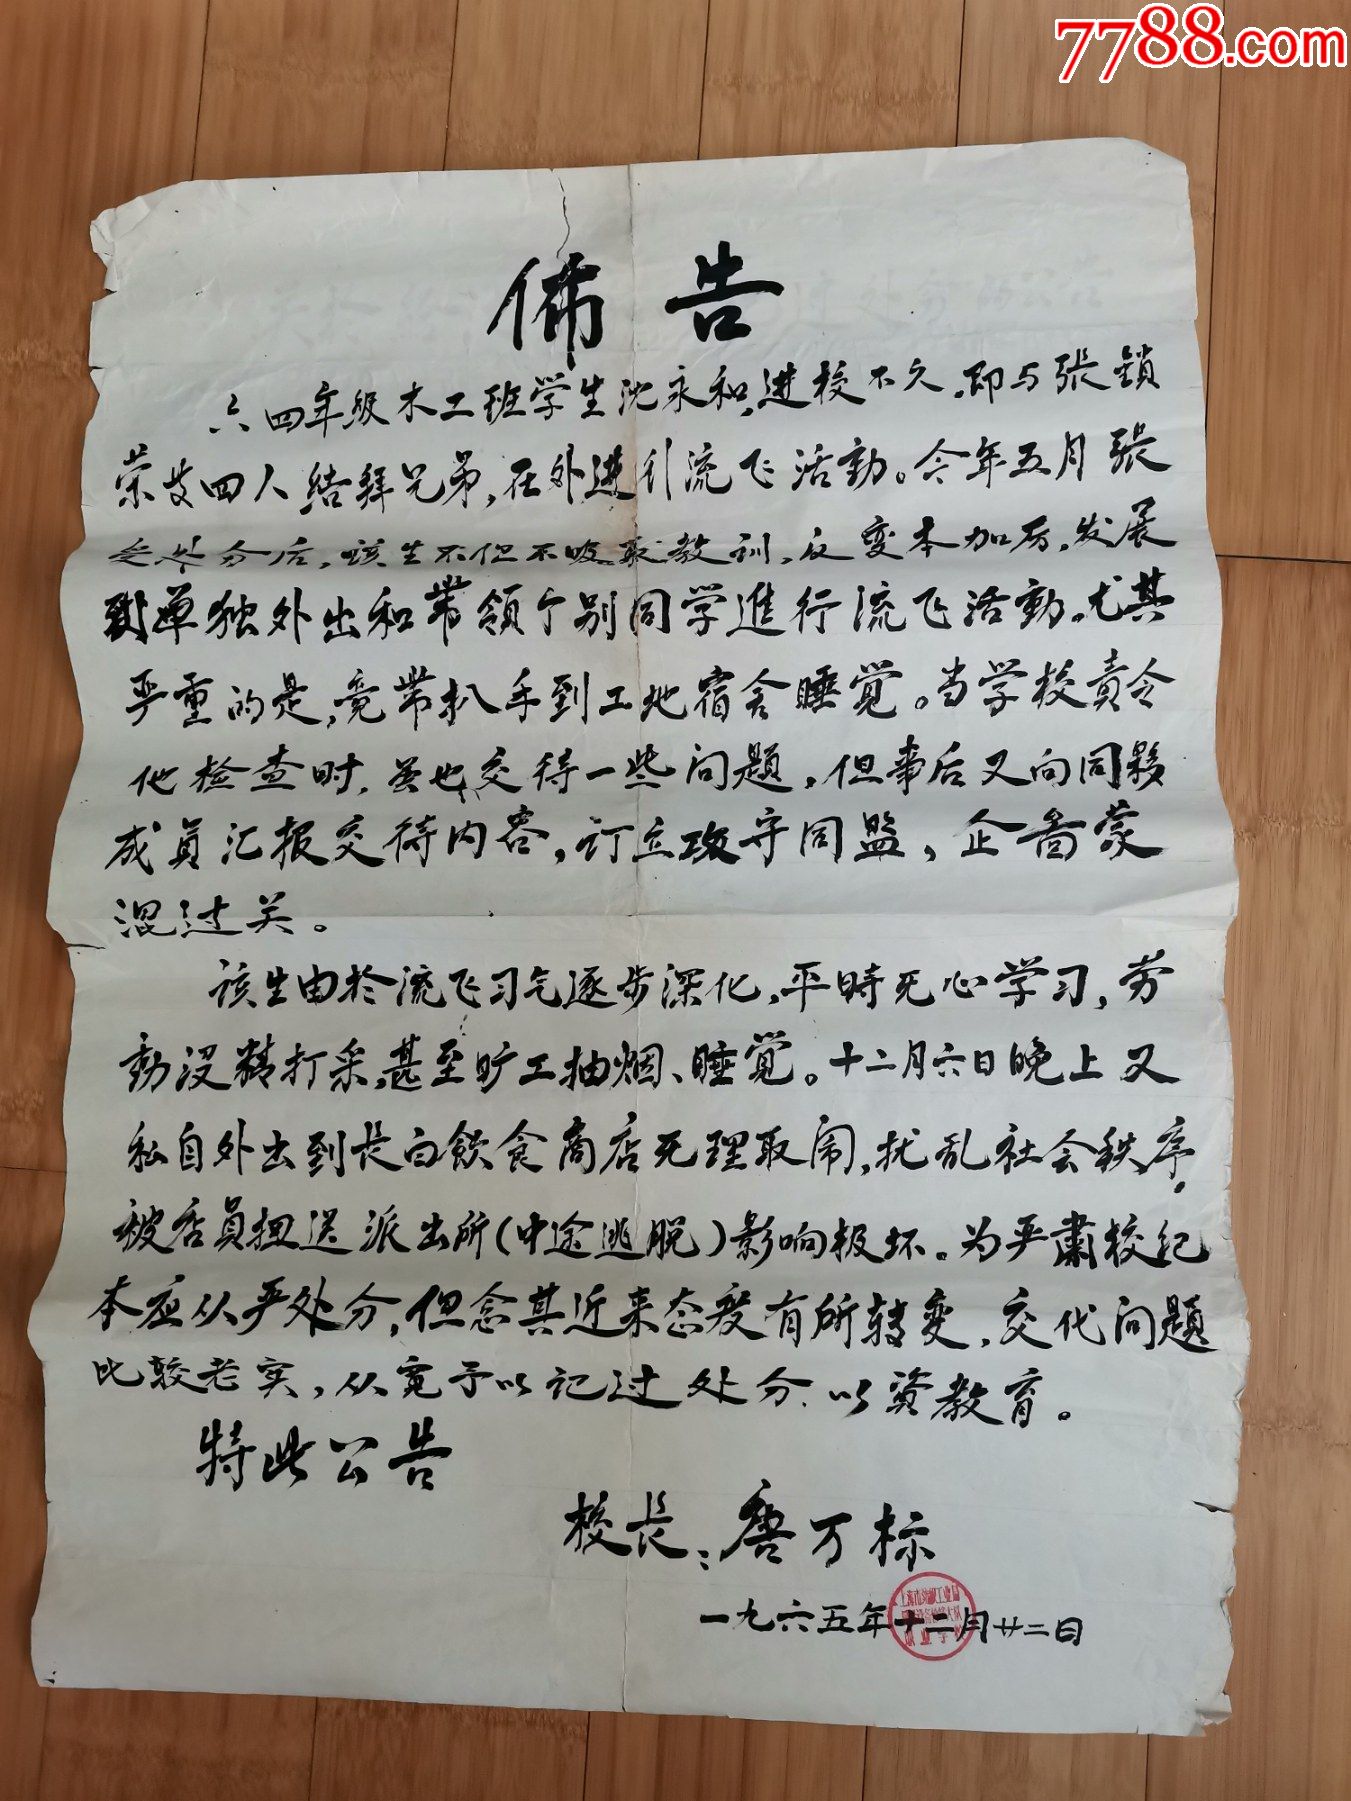 7788.com
佈告
六四年级木工班学生沈永和,进校不久,即与张鎖
荣等四人结拜兄弟,在外进行流飞活動。今年五月張
受处分后,该生不但不吸取教训,反变本加厉,发展
到单独外出和带领个别同学進行流飞活動。尤其
严重的是,竟带扒手到工地宿舍睡觉。当学校责令
他检查时,虽也交待一些问题,但事后又向同夥
成員汇报交待内容,订立攻守同盟,企啚蒙
混过关。
该生由於流飞习气逐步深化,平時无心学习,劳
動没精打采,甚至旷工抽烟、睡觉。十二月六日晚上又
私自外出到长白飲食商店无理取闹,扰乱社会秩序,
被店員扭送派出所(中途逃脱)影响极坏。为严肃校纪
本应从严处分,但念其近来态度有所转变,交代问題
比较老实,从宽予以记过处分,以资教育。
特此公告
校长:唐万标
一九六五年十二月廿二日